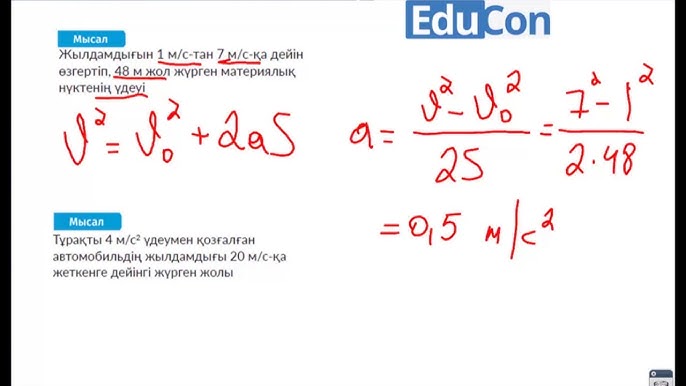 EduCon
Мысал
Жылдамдығын 1 м/с-тан 7 м/с-қа дейін
өзгертіп, 48 м жол жүрген материялық
нүктенің үдеуі
υ² = υ₀² + 2aS
a = (υ² - υ₀²) / 2S = (7² - 1²) / (2·48)
= 0,5 м/с²
Мысал
Тұрақты 4 м/с² үдеумен қозғалған
автомобильдің жылдамдығы 20 м/с-қа
жеткенге дейінгі жүрген жолы